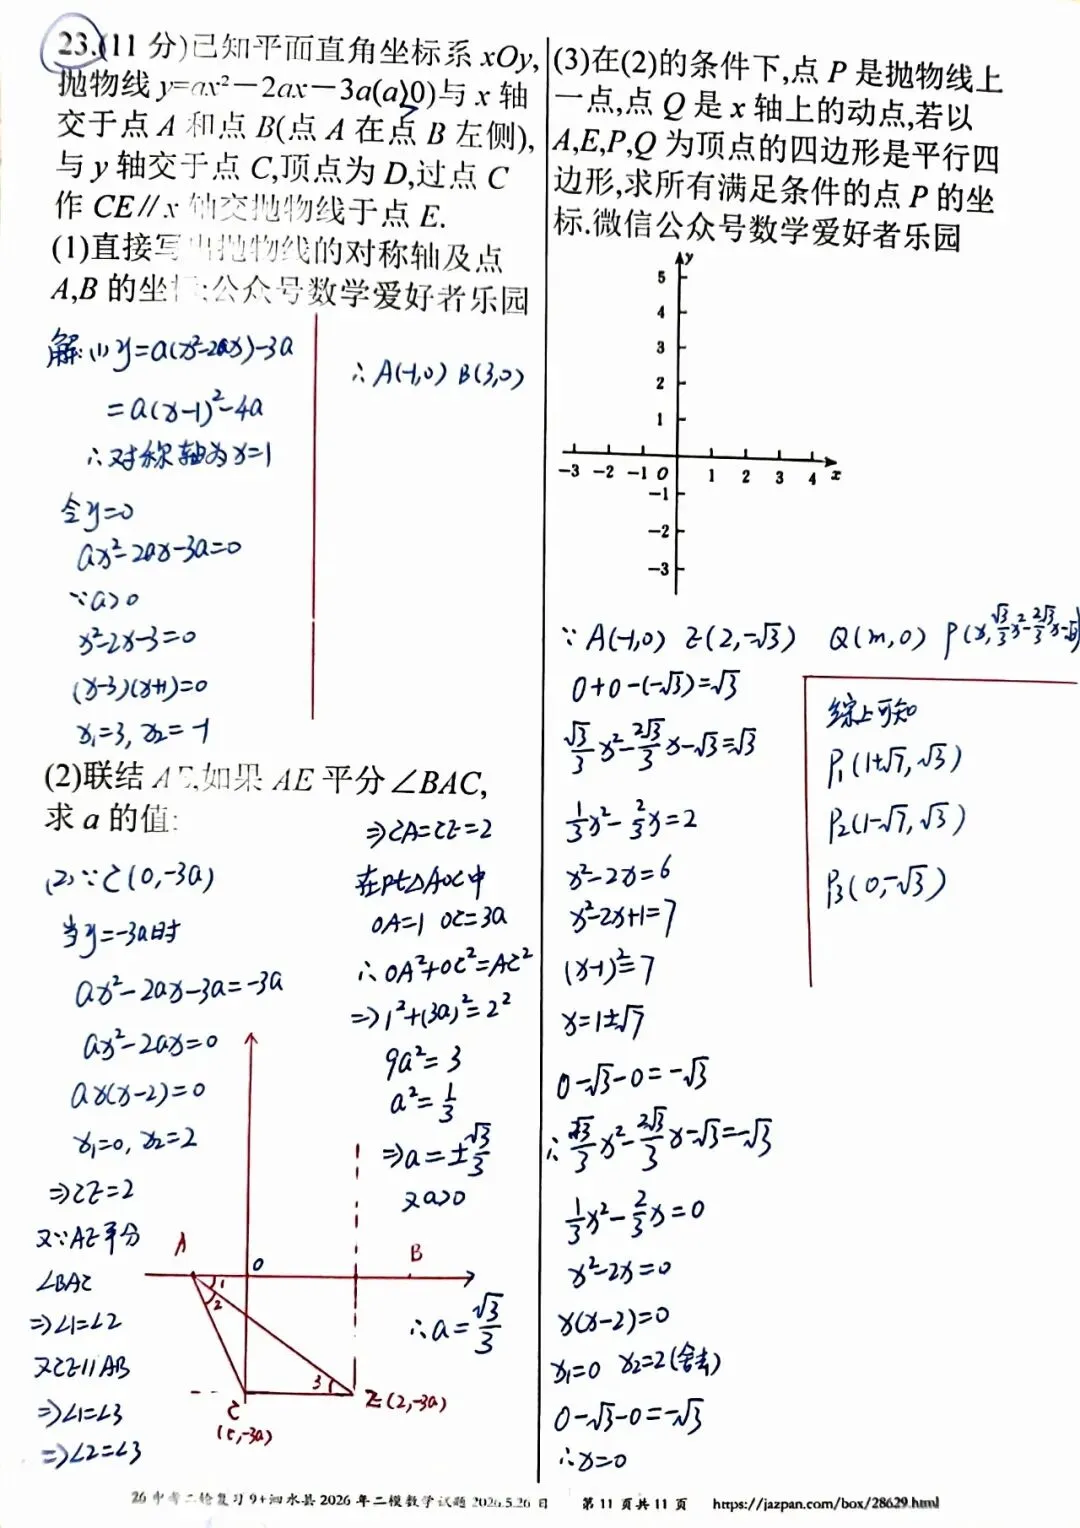 23.(11分)已知平面直角坐标系xOy,
抛物线y=ax²-2ax-3a(a>0)与x轴
交于点A和点B(点A在点B左侧),
与y轴交于点C,顶点为D,过点C
作CE∥x轴交抛物线于点E.
(1)直接写出抛物线的对称轴及点
A,B的坐标;公众号数学爱好者乐园
解:(1) y=a(x²-2x)-3a
=a(x-1)²-4a
∴对称轴为x=1
令y=0
ax²-2ax-3a=0
∵a>0
x²-2x-3=0
(x-3)(x+1)=0
x₁=3, x₂=-1
∴A(-1,0) B(3,0)
(2)联结AE,如果AE平分∠BAC,
求a的值:
(2)∵C(0,-3a)
当y=-3a时
ax²-2ax-3a=-3a
ax²-2ax=0
ax(x-2)=0
x₁=0, x₂=2
⇒CE=2
又∵AE平分
∠BAC
⇒∠1=∠2
又CE∥AB
⇒∠1=∠3
⇒∠2=∠3
⇒CA=CE=2
在Rt△AOC中
OA=1 OC=3a
∴OA²+OC²=AC²
⇒1²+(3a)²=2²
9a²=3
a²=1/3
⇒a=±√3/3
又a>0
∴a=√3/3
A
O
B
1
2
3
C
E(2,-3a)
(3)在(2)的条件下,点P是抛物线上
一点,点Q是x轴上的动点,若以
A,E,P,Q为顶点的四边形是平行四
边形,求所有满足条件的点P的坐
标.微信公众号数学爱好者乐园
y
5
4
3
2
1
-3 -2 -1 O 1 2 3 4 x
-1
-2
-3
∵A(-1,0) E(2,-√3) Q(m,0) P(x,√3/3x²-2√3/3x-√3)
0+0-(-√3)=√3
√3/3x²-2√3/3x-√3=√3
1/3x²-2/3x=2
x²-2x=6
x²-2x+1=7
(x-1)²=7
x=1±√7
0-√3-0=-√3
∴√3/3x²-2√3/3x-√3=-√3
1/3x²-2/3x=0
x²-2x=0
x(x-2)=0
x₁=0 x₂=2(舍去)
0-√3-0=-√3
∴x=0
综上可知
P₁(1+√7,√3)
P₂(1-√7,√3)
P₃(0,-√3)
26中考二轮复习9+泗水县2026年二模数学试题2026.5.26日 第11页共11页 https://jazpan.com/box/28629.html